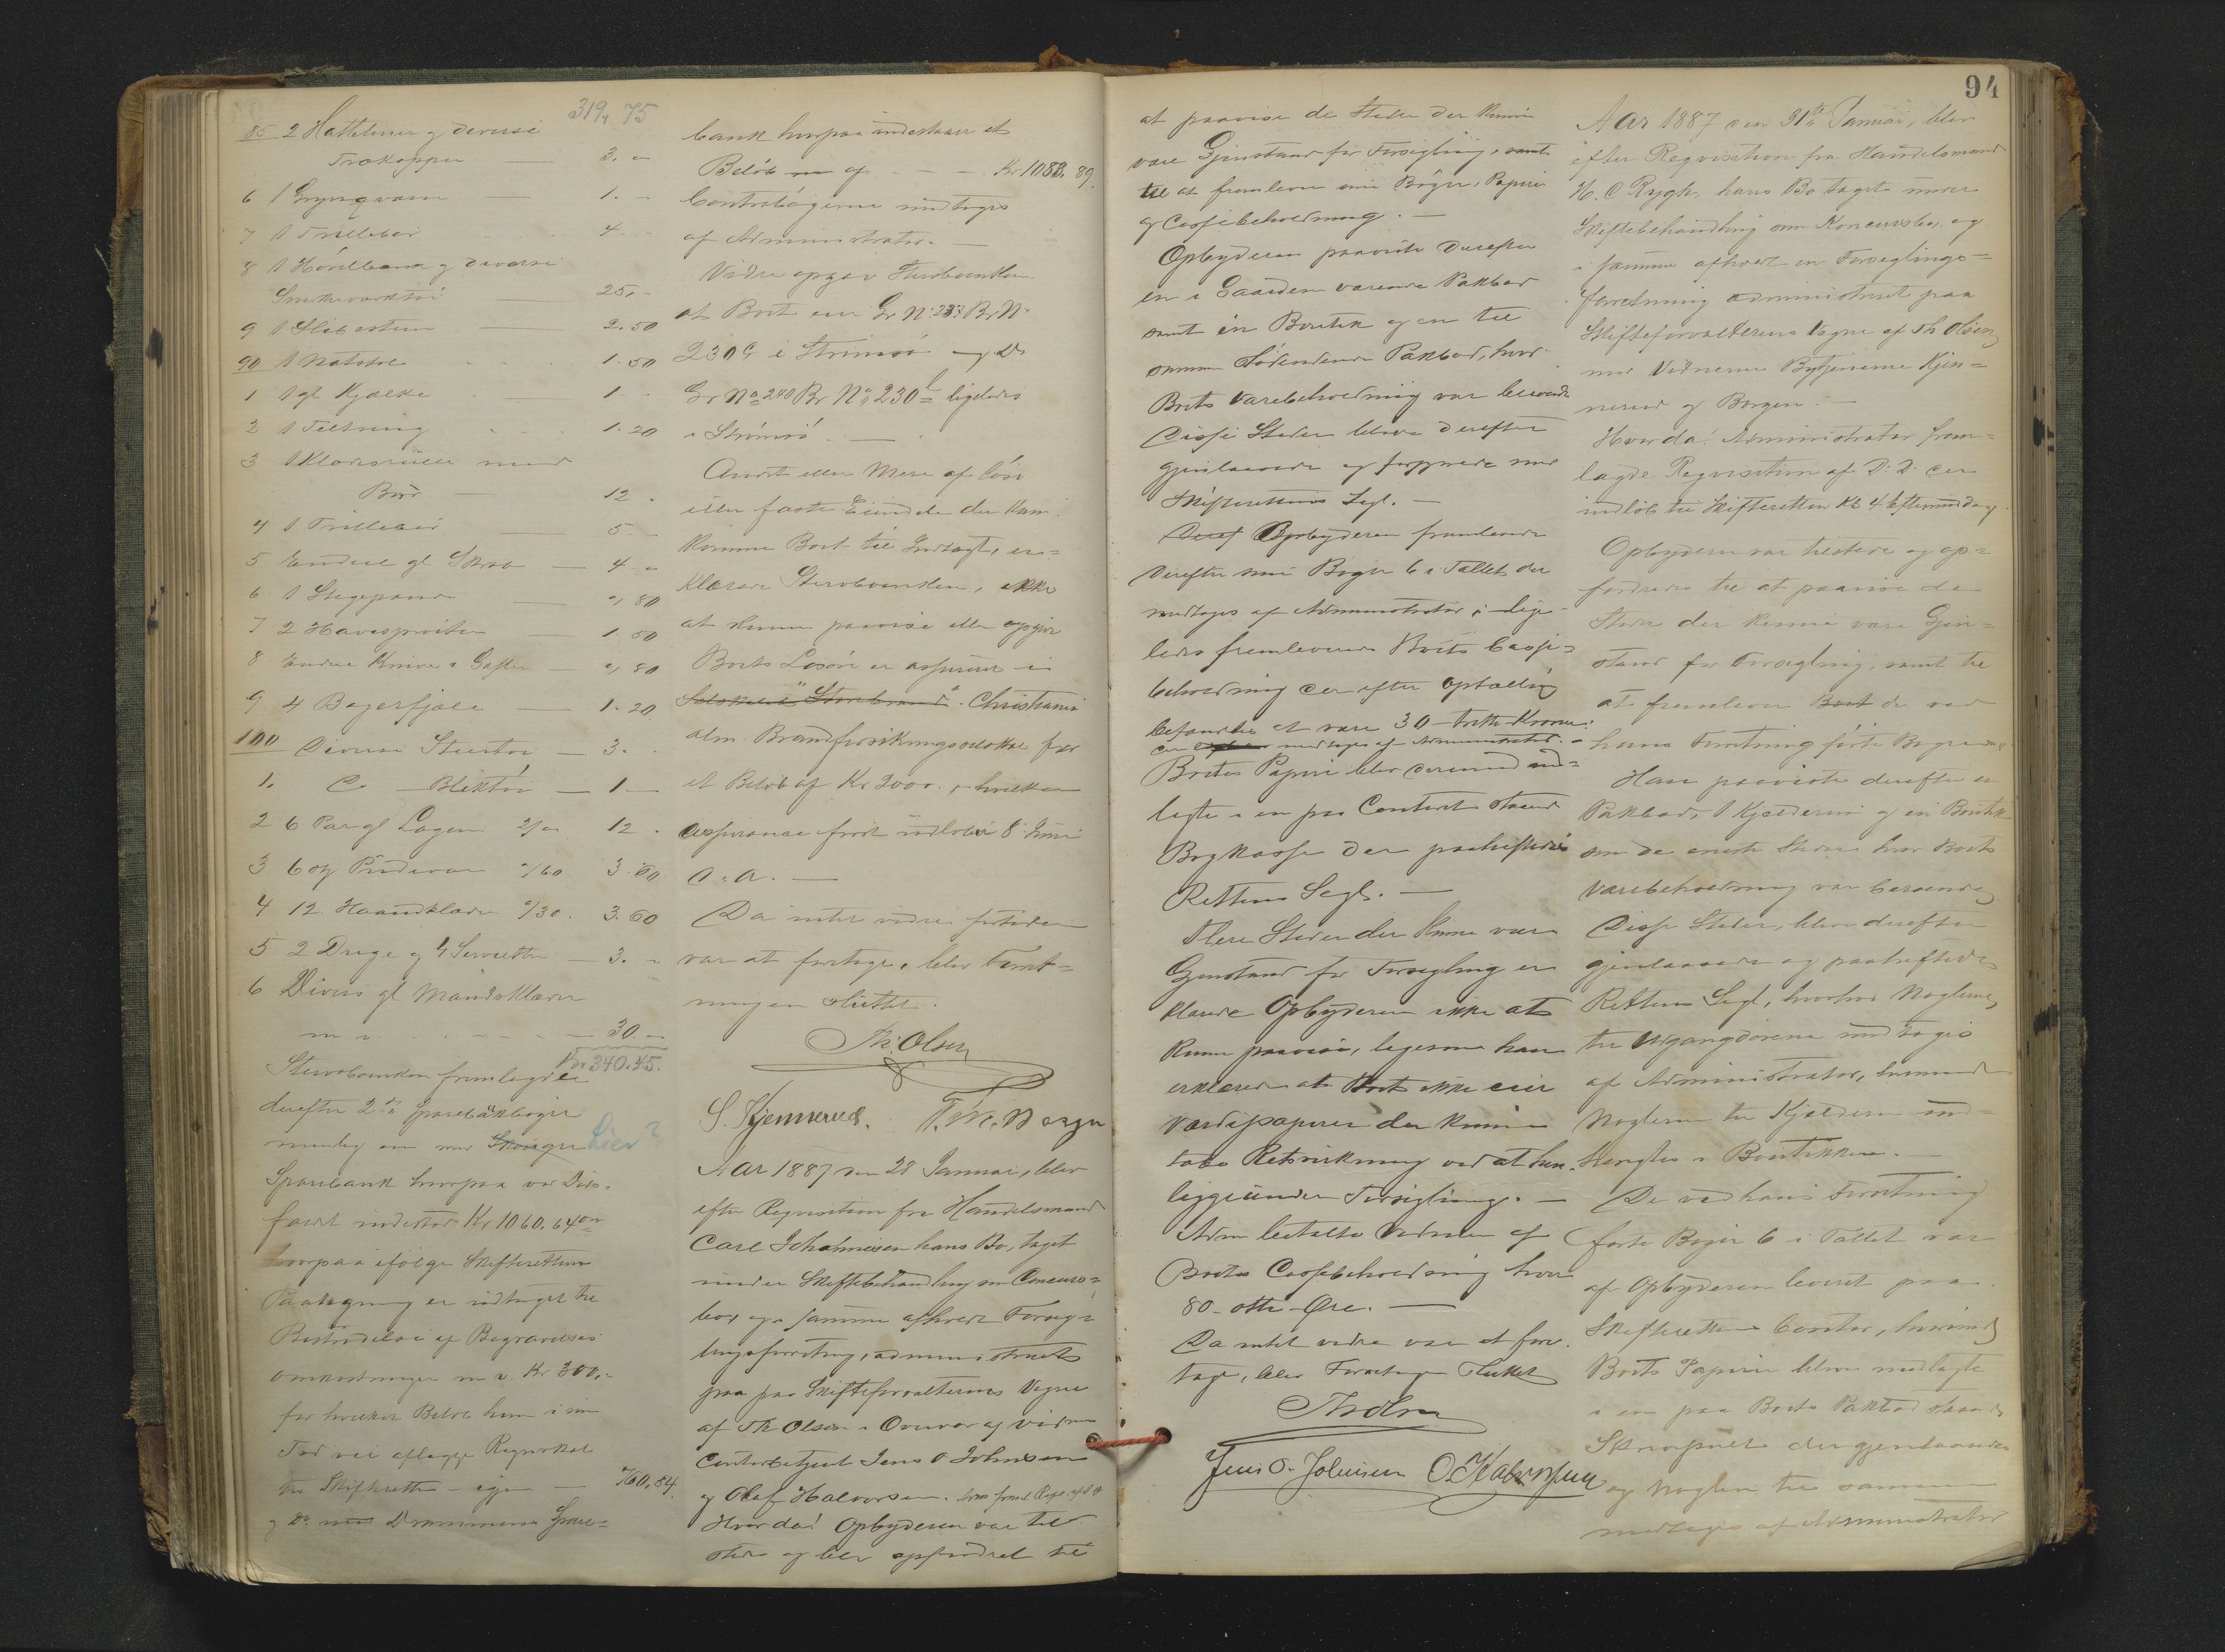 319, 75
85 2 Hattetiner og diverse
Trækopper — 3. "
6 1 Grynqværn — 1. -
7 1 Trillebør 4 -
8 1 Hövelbænk og diverse
Snekkerværktöi 25, -
9 1 Slibesten 2.50
90 1 Natstol 1.50
1 1 gl Kjælke 1 -
2 1 1.20
3 1 Klædesrulle med
Bord — 12 .
4 1 Trillebör 5 -
5 Endeel gl — 4 "
6 1 Stegepande — ", 80
7 2 Havesprøiter — 1.50
8 Endeel Knive & Gafler — ", 80
9 4 Bagerfjæle — 1.20
100 Diverse Steentøi — 3. -
1. Do — Bliktöi — 1 —
2 6 Par gl Lagen 2/00 12 .
3 6 og Pudevar "/60 3.60
4 12 Haandklæder "/30. 3.60
5 2 Duge og 4 Servietter — 3. -
6 Divers gl Mandsklæder
m v. - - - — 30. —
Kr 340.45.
Stervboenken fremlagde
derefter 2de Sparebankbøger
nemlig een med Skouger Lier?
Sparebank hvorpaa ved
indestod Kr 1060.64
hvorpaa ifölge Skifterettens
Paategning er udtaget til
Bestridelse af Begravelses
omkostninger m v. Kr 300,-
for hvilket Beløb hun i sin
Tid vil aflægge Regnskab
for Skifteretten — igjen — 760,64.
og Do med Drammens Spare=
bank hvorpaa indestaaer et
Beløb af - - - Kr 1083.89.
Contrabögerne modtoges
af Administrator. —
Videre opgav Stervboenken
at Boet eier Gr No 237 Br No
230c i Strömsö og Do
Gr No 240 Br No 230b ligeledes
i Strömsö. —
Andet eller Mere af löst
eller fast Eiendele der kan
komme Boet til Indtægt, er=
klærede Stervboenken, ikke
at kunne paavise eller opgive
Boets Løsøre er assureret i
Selskabet "Storebrand". Christiania
alm. Brandforsikringsselskab for
et Beløb af Kr 2000. hvilken
assurance först udløber 8 Juni
d.a. —
Da intet videre fortiden
var at foretage, blev Forret=
ningen sluttet.
Th. Olsen
S. Kjennerud. Borgen
Aar 1887 den 28 Januar, blev
efter Reqvisition fra Handelsmand
Carl Johannesen hans Bo, taget
under Skiftebehandling som Concurs=
bo og i samme afholdt Forseg=
lingsforretning, administreret
paa paa Skifteforvalterens Vegne
af Th Olsen i Overvær af Vidner
Contorbetjent Jens O Johnsen
og Olaf Halvorsen.
Hvor da! Opbyderen var til
stede og blev opfordret til
94
at paavise de Steder der kunne
være Gjenstand for Forsegling, samt
til at fremlevere sine Bøger, Papirer
og Cassebeholdning. —
Opbyderen paaviste derefter
en i Gaarden værende Pakbod
samt en Boutik og en til
samme stödende Pakbod, hvor
Boets Varebeholdning var beroende
Disse Steder bleve derefter
gjenlaasede og forsynede med
Skifterettens Segl. —
Opbyderen fremleverede
derefter sine Bøger 6 i Tallet der
modtoges af Administrator; lige=
ledes fremleveredes Boets Casse=
beholdning der efter Optælling
befandtes at være 30 - tretti Kroner.
der modtoges af Administrator. -
Boets Papirer blev dernæst ned=
lagte i en paa Contoret staaende
Bogkasse der paaheftedes
Rettens Segl. —
Flere Steder der kunne være
Gjenstand for Forsegling er
klærede Opbyderen ikke at
kunne paavise, ligesom han
erklærede at Boet ikke eier
Værdipapirer der kunne
tabe Retsvirkning ved at hen.
ligge under Forsegling. —
Adm betalte Vidnerne af
Boets Cassebeholdning hver
80 - otti - Øre. —
Da intet videre var at fore.
tage, blev Forretn. sluttet
Th Olsen
Jens O. Johnsen O. Halvorsen
Aar 1887 den 31te Januar, blev
efter Reqvisition fra Handelsmand
H. C Rygh, hans Bo taget under
Skiftebehandling som Koncursbo, og
i samme afholdt en Forseglings=
forretning administreret paa
Skifteforvalterens Vegne af Th Olsen
med Vidnerne Bytjenerne Kjen=
nerud og Borgen. —
Hvor da! Administrator frem=
lagde Reqvisition af D. D. der
indløb til Skifteretten Kl 4 Eftermiddag.
Opbyderen var tilstede og op=
fordredes til at paavise de
Steder der kunne være Gjen=
stand for Forsegling, samt til
at fremlevere Boet de ved
hans Forretning førte Bøger
Han paaviste derefter en
Pakbod, 1 Kjælderrum og en Boutik
som de eneste Steder hvor Boets
Varebeholdning var beroende
Disse Steder, bleve derefter
gjenlaasede og paaheftedes
Rettens Segl, hvorhos Nøglerne
til Udgangsdørene modtoges
af Administrator,
Nøglerne til Kjælderen
i Boutikken. —
De ved hans Forretning
førte Bøger 6 i Tallet var
af Opbyderen leveret paa
Skifterettens Contor, hvorimod
Boets Papirer bleve nedlagte
i en paa Boets Pakbod staaende
der gjenlaasedes
og Nøglen til samme
modtoges af Administrator